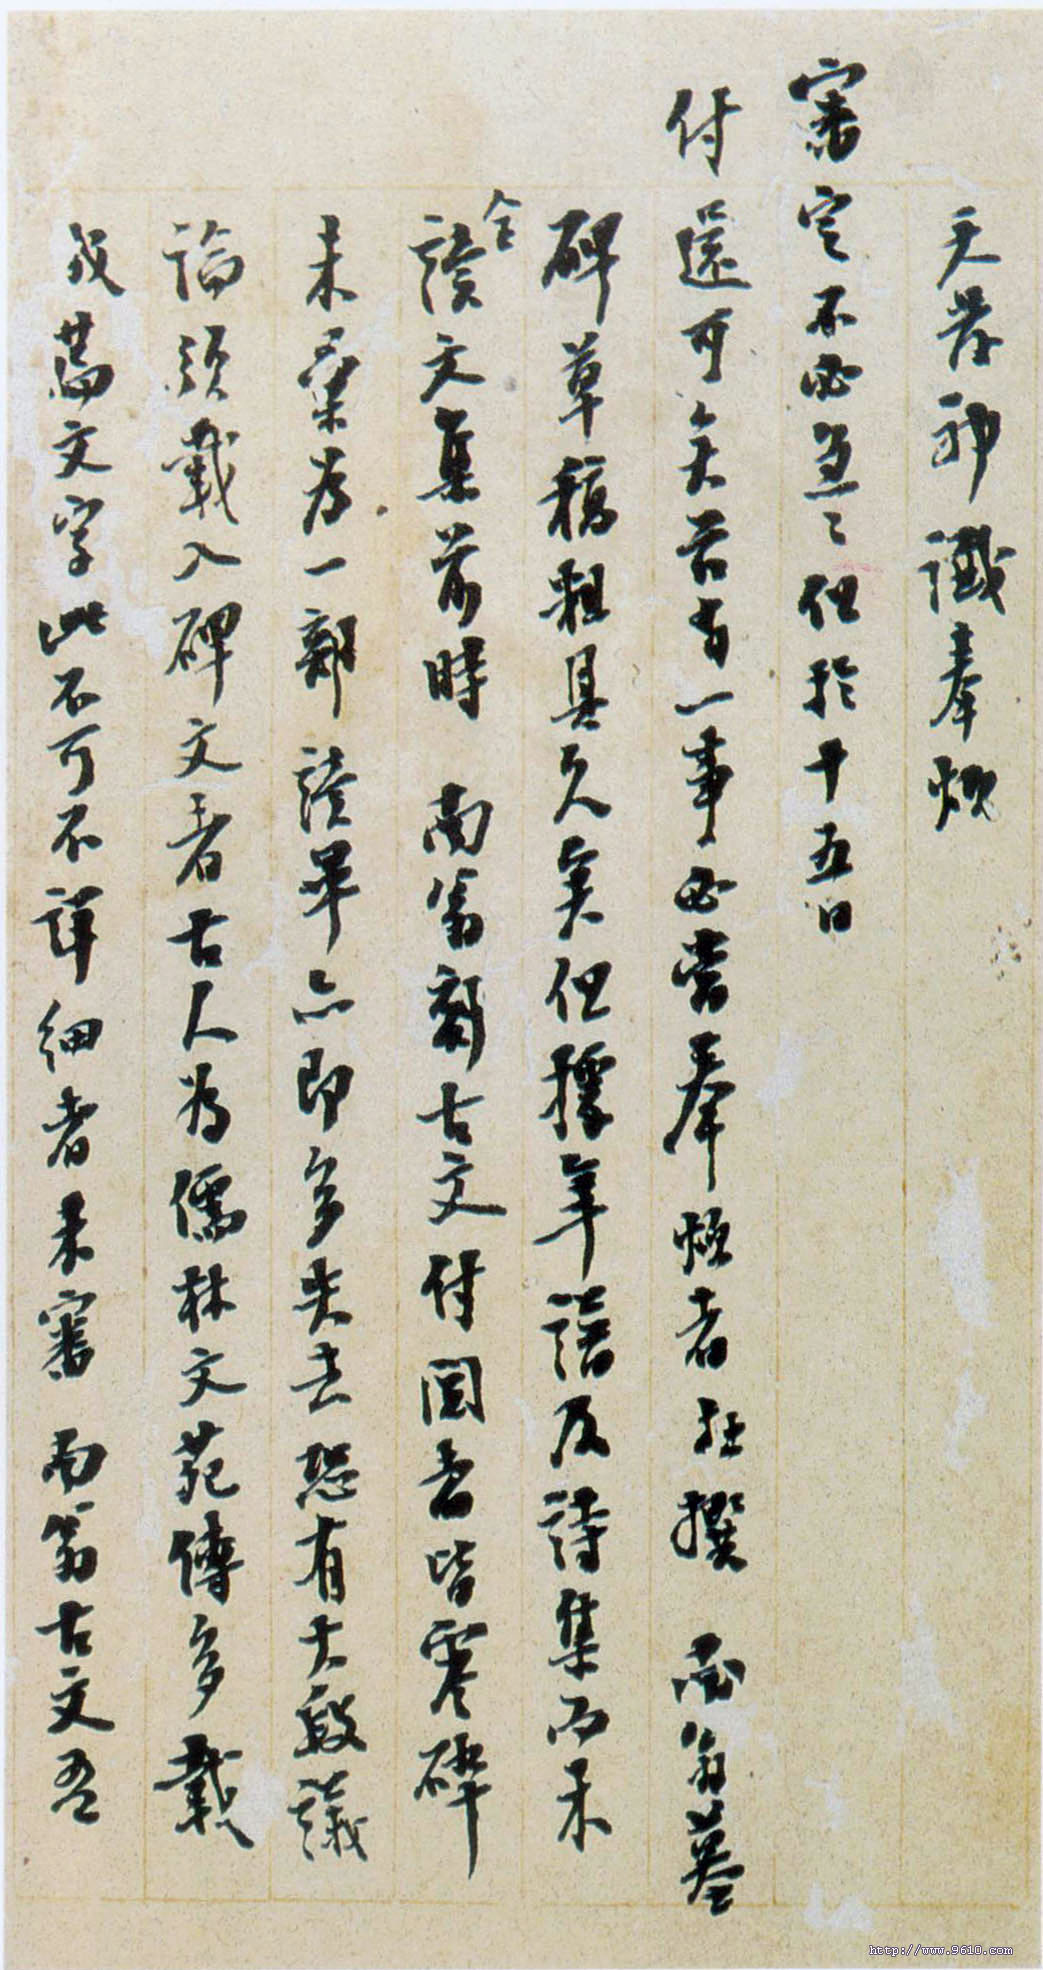 天發神讖奉煩
審定不必急急但於十五日
付還可矣若有一事必當奉煩者 撰 南翁墓
碑草稿粗具久矣但據年譜及詩集而未
讀全文集前時 南翁新古文付閱者皆零碎
未彙為一部 讀畢亦即多失去恐有大段議
論須載入碑文者古人為儒林文苑傳多載
此不可不詳細者未審 南翁古文吾
http://www.9610.com